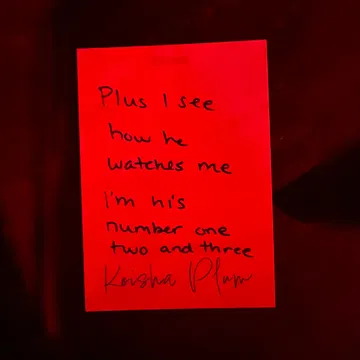 Plus I see
how he
watches me
I'm his
number one
two and three
Keisha Plum